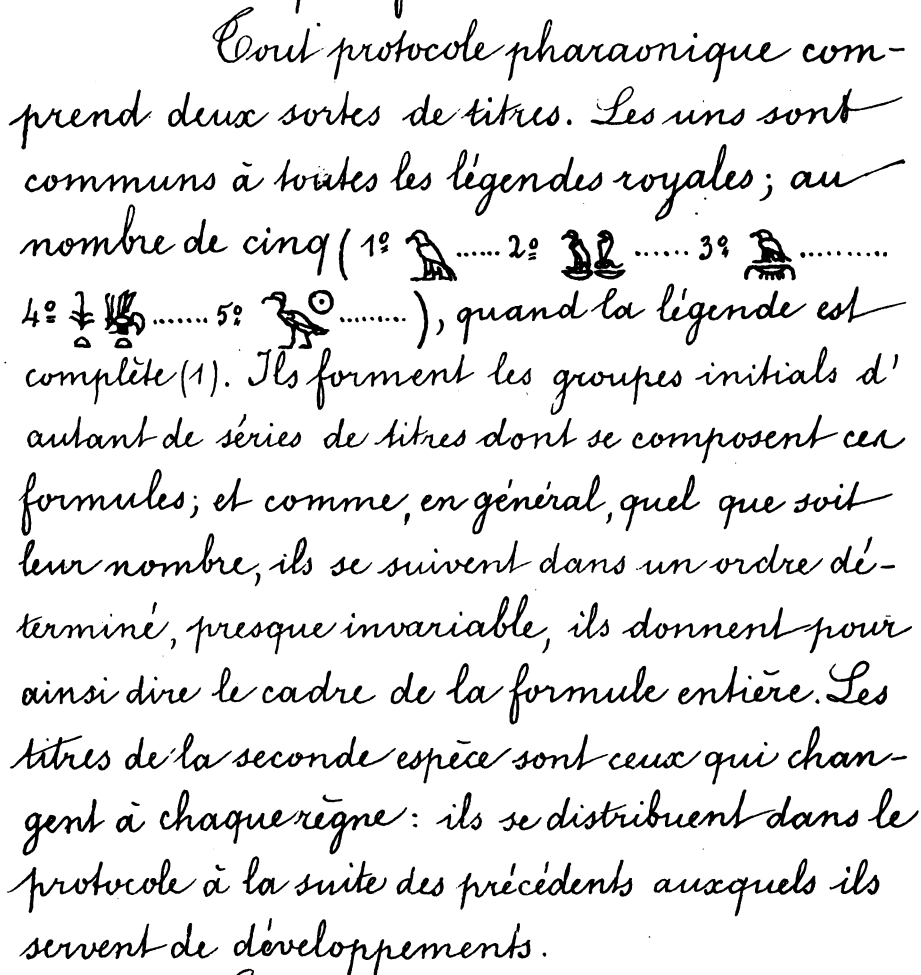 Tout protocole pharaonique com-
prend deux sortes de titres. Les uns sont
communs à toutes les légendes royales; au
nombre de cinq (1º 𓅃 ...... 2º 𓅒 ...... 3º 𓅉 ..........
4º 𓆥 ....... 5º 𓅭𓇳 ........), quand la légende est
complète (1). Ils forment les groupes initials d'
autant de séries de titres dont se composent ces
formules; et comme, en général, quel que soit
leur nombre, ils se suivent dans un ordre dé-
terminé, presque invariable, ils donnent pour
ainsi dire le cadre de la formule entière. Les
titres de la seconde espèce sont ceux qui chan-
gent à chaque règne: ils se distribuent dans le
protocole à la suite des précédents auxquels ils
servent de développements.